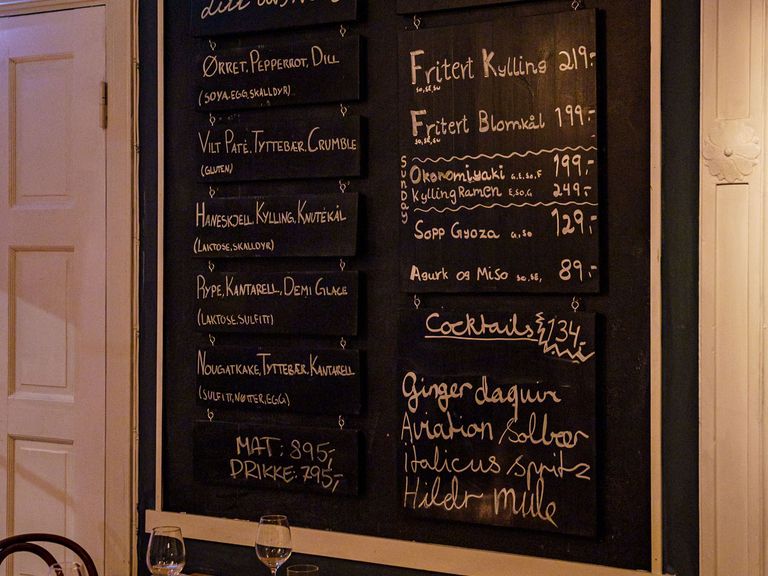 Ørret, Pepperrot, Dill
(Soya, egg, skalldyr)
Vilt Paté, Tyttebær, Crumble
(gluten)
Haneskjell, Kylling, Knutekål
(Laktose, skalldyr)
Rype, Kantarell, Demi Glace
(Laktose, sulfitt)
Nougatkake, Tyttebær, Kantarell
(sulfitt, nøtter, egg)
MAT: 895,-
DRIKKE: 795,-
Fritert Kylling 219,-
so, se, su
Fritert Blomkål 199,-
so, se, su
Sunday
Okonomiyaki G, E, so, F 199,-
Kylling Ramen E, so, G 249,-
Sopp Gyoza G, so 129,-
Agurk og Miso so, se, 89,-
Cocktails 134,-
Ginger daquiri
Aviation / Solbær
Italicus spritz
Hildr Mule